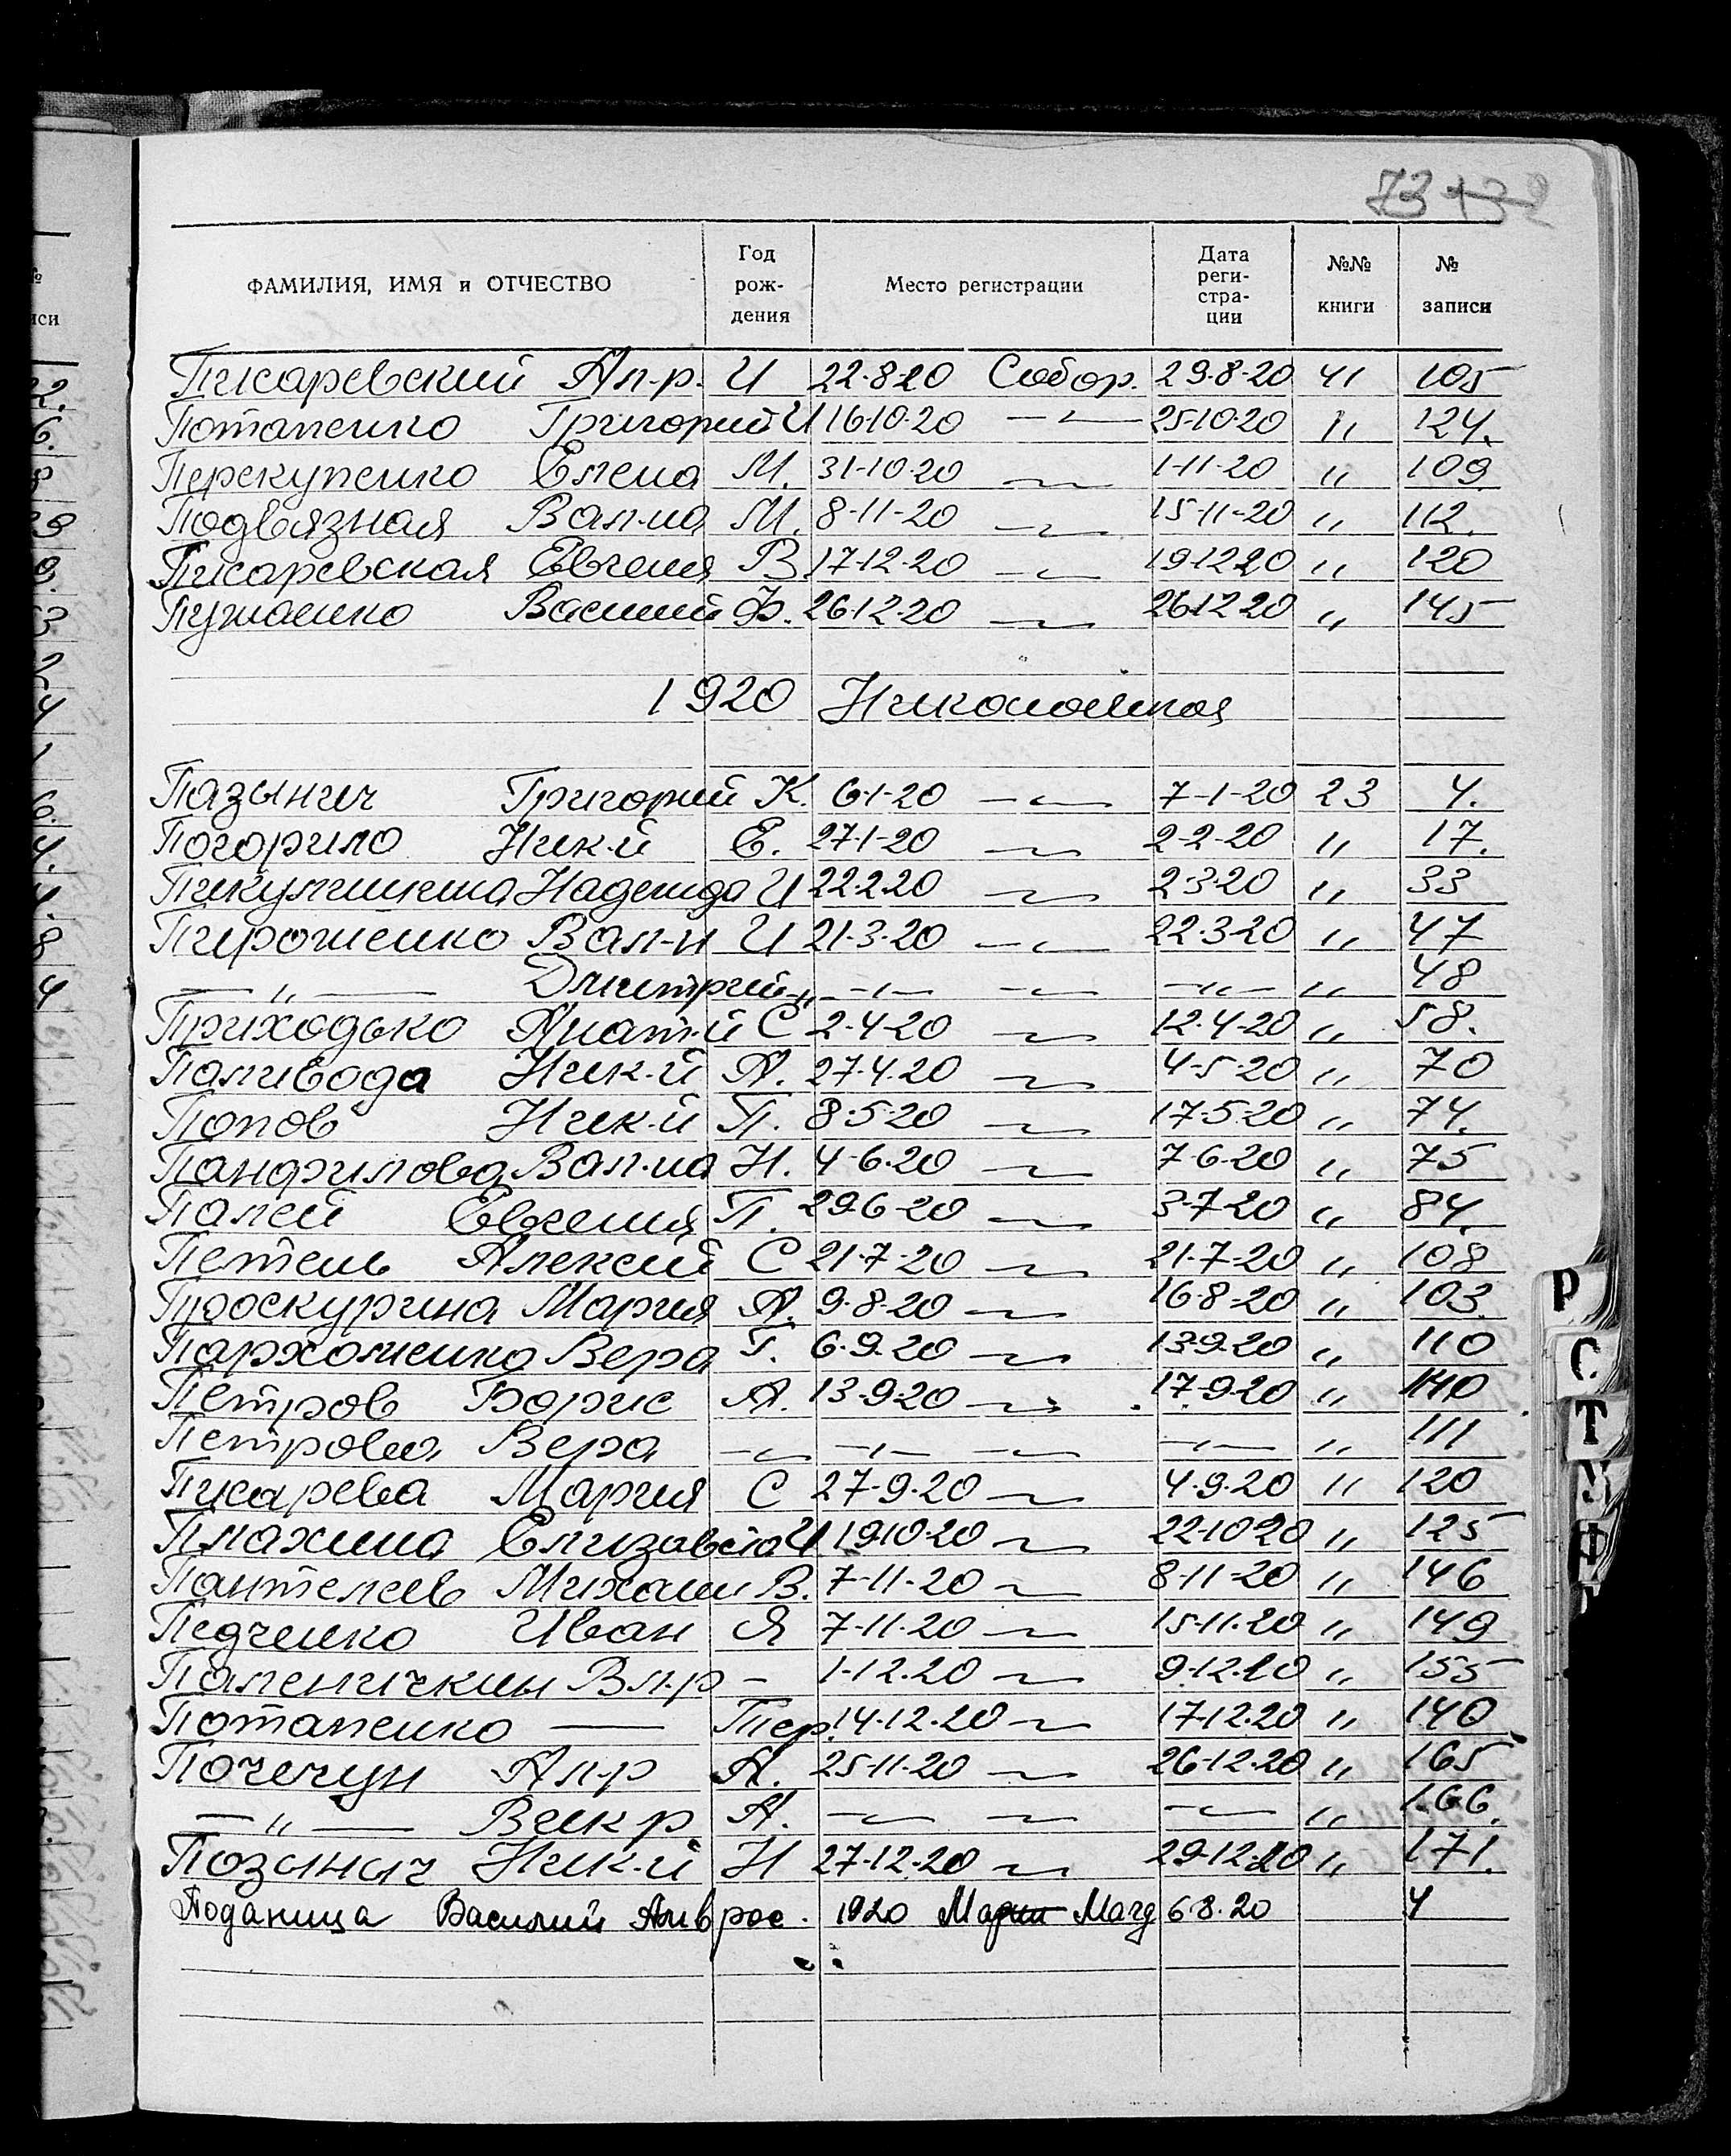 73 132
ФАМИЛИЯ, ИМЯ и ОТЧЕСТВО Год рождения Место регистрации Дата регистрации №№ книги № записи
Писаревский Ал-р. И 22-8-20 Собор. 29-8-20 41 105
Потапенко Григорий И 16-10-20 —〃— 25-10-20 〃 124.
Перекупенко Елена М. 31-10-20 —〃— 1-11-20 〃 109
Подвязная Вал-на М. 8-11-20 —〃— 15-11-20 〃 112.
Писаревская Евгения В. 17-12-20 —〃— 19-12-20 〃 120
Василий Ф. 26-12-20 —〃— 26-12-20 〃 145
1920
Пазынич Григорий К. 6-1-20 —〃— 7-1-20 23 4.
Погорило Ник-й Е. 27-1-20 —〃— 2-2-20 〃 17.
Надежда И 22.2.20 —〃— 2-3-20 〃 33
Пирошенко Вал-н И 21-3-20 —〃— 22-3-20 〃 47
—〃— Дмитрий —〃— —〃— —〃— —〃— 〃 48
Приходько Анат-й С 2-4-20 —〃— 12-4-20 〃 58.
Паливода Ник-й А. 27-4-20 —〃— 4-5-20 〃 70
Попов Ник-й П. 8-5-20 —〃— 17-5-20 〃 74.
Панфилова Вал-на Н. 4-6-20 —〃— 7-6-20 〃 75
Палей Евгения П. 29-6-20 —〃— 3-7-20 〃 84.
Петель Алексей С 21-7-20 —〃— 21-7-20 〃 108
Проскурина Мария А. 9-8-20 —〃— 16-8-20 〃 103
Пархоменко Вера Т. 6-9-20 —〃— 13-9-20 〃 110
Петров Борис А. 13-9-20 —〃— 17-9-20 〃 110
Петрова Вера —〃— —〃— —〃— —〃— 〃 111
Писарева Мария С 27-9-20 —〃— 4-9-20 〃 120
Плахина Елизавета И 19-10-20 —〃— 22-10-20 〃 125
Пантелеев Михаил В. 7-11-20 —〃— 8-11-20 〃 146
Педченко Иван Я 7-11-20 —〃— 15-11-20 〃 149
Паленичкин Вл-р - 1-12-20 —〃— 9-12-20 〃 155
Потапенко — Тер. 14-12-20 —〃— 17-12-20 〃 140
Почечун Ал-р А. 25-11-20 —〃— 26-12-20 〃 165
—〃— Вик-р А. —〃— —〃— —〃— 〃 166.
Позыныч Ник-й Н 27-12-20 —〃— 29-12-20 〃 171.
Поданица Василий Амврос. 1920 Магд 6-8-20 4
Р
С
Т
У
Ф